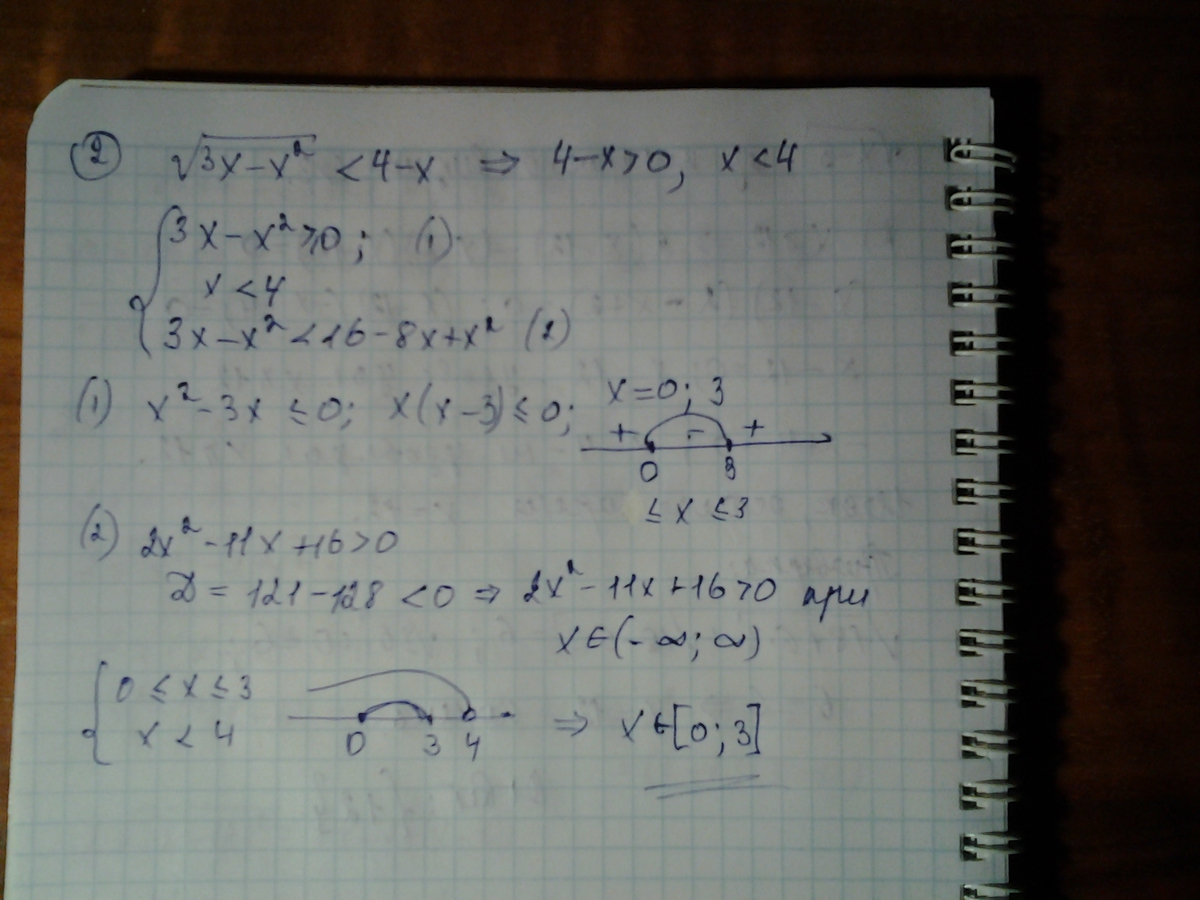 ② √3x-x² < 4-x ⇒ 4-x>0, x<4
{ 3x-x²≥0; (1)
x<4
3x-x²<16-8x+x² (2)
(1) x²-3x ≤0; x(x-3)≤0; x=0; 3
+ - +
0 3
≤ x ≤3
(2) 2x²-11x+16>0
D = 121-128 <0 ⇒ 2x²-11x+16>0 при
x∈(-∞; ∞)
{ 0 ≤ x ≤ 3
x < 4
0 3 4 ⇒ x∈[0; 3]